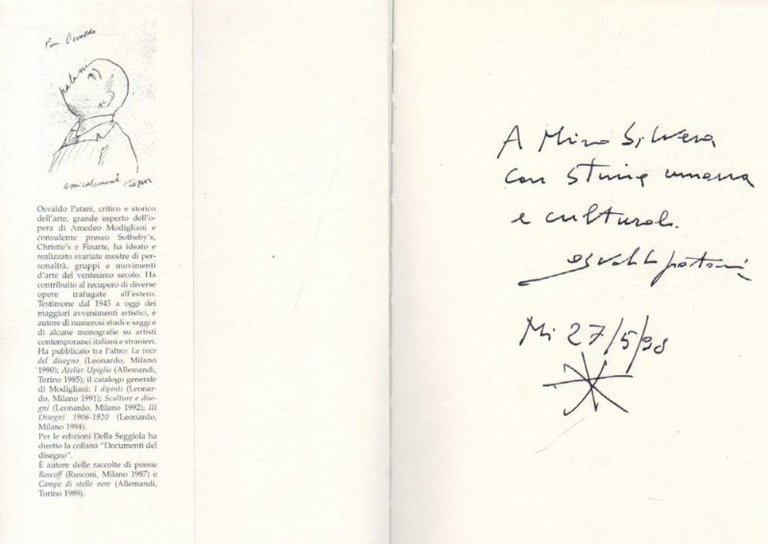 Per Osvaldo
patani
amicalmente
Osvaldo Patani, critico e storico
dell'arte, grande esperto dell'o-
pera di Amedeo Modigliani e
consulente presso Sotheby's,
Christie's e Finarte, ha ideato e
realizzato svariate mostre di per-
sonalità, gruppi e movimenti
d'arte del ventesimo secolo. Ha
contribuito al recupero di diverse
opere trafugate all'estero.
Testimone dal 1945 a oggi dei
maggiori avvenimenti artistici, è
autore di numerosi studi e saggi e
di alcune monografie su artisti
contemporanei italiani e stranieri.
Ha pubblicato tra l'altro: La voce
del disegno (Leonardo, Milano
1990); Atelier Upiglio (Allemandi,
Torino 1985); il catalogo generale
di Modigliani: I dipinti (Leonar-
do, Milano 1991); Sculture e dise-
gni (Leonardo, Milano 1992); III
Disegni 1906-1920 (Leonardo,
Milano 1994).
Per le edizioni Della Seggiola ha
diretto la collana "Documenti del
disegno".
È autore delle raccolte di poesie
Roscoff (Rusconi, Milano 1987) e
Campo di stelle nere (Allemandi,
Torino 1989).
A Mino Silvera
con stima umana
e culturale.
osvaldo patani
Mi 27/5/98